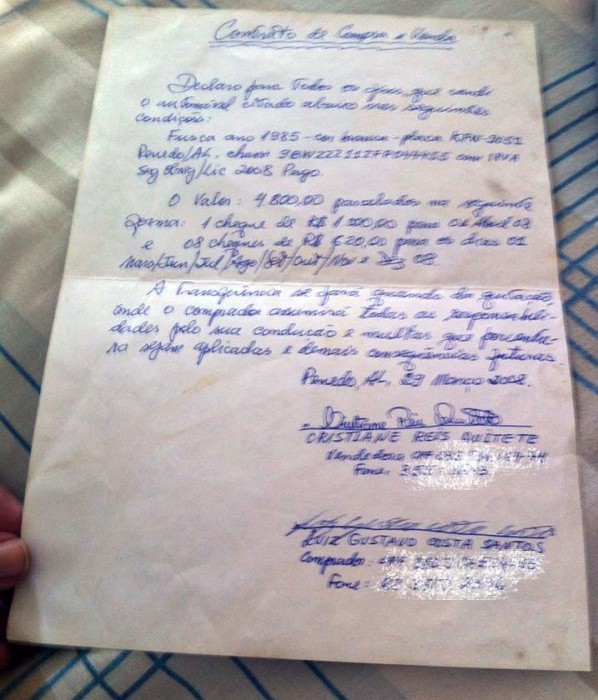 Contrato de Compra e Venda
Declaro para todos os fins, que vendi
o automóvel citado abaixo nas seguintes
condições:
Fusca ano 1985 - cor branca - placa KFW-3051
Penedo/AL, chassi com IPVA
Seg Obrig/Lic 2008 Pago.
O Valor: 4.800,00 parcelados na seguinte
forma: 1 cheque de R$ para 01 Abril 08
e 08 cheques de R$ 620,00 para os dias 01
Maio/Jun/Jul/Ago/Set/Out/Nov e Dez 08.
A transferência se fará quando da quitação,
onde o comprador assumirá todas as responsabili-
dades pelo sua condução e multas que porventu-
ra sejam aplicadas e demais consequências futuras.
Penedo, AL, 29 Março 2008.
CRISTIANE REIS AVITETE
Vendedora CPF
Fone:
LUIZ GUSTAVO COSTA SANTOS
Comprador: CPF
Fone: